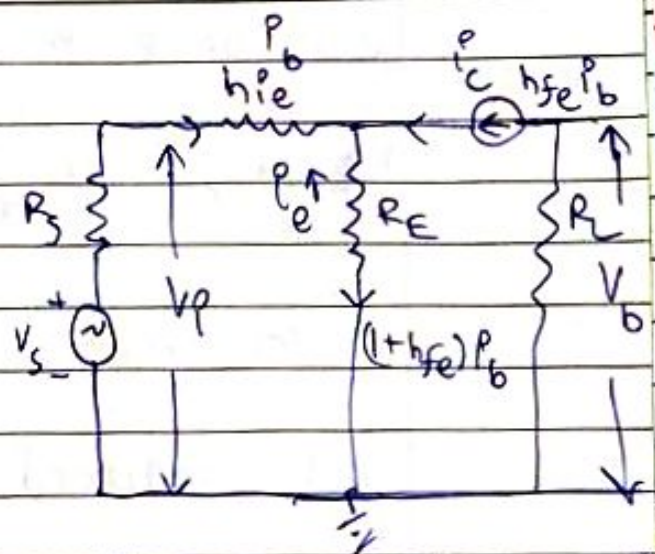 i_b
h_ie
i_c h_fe i_b
R_s
i_e R_E
R_L
+
V_s
-
V_i
(1+h_fe) i_b
V_b